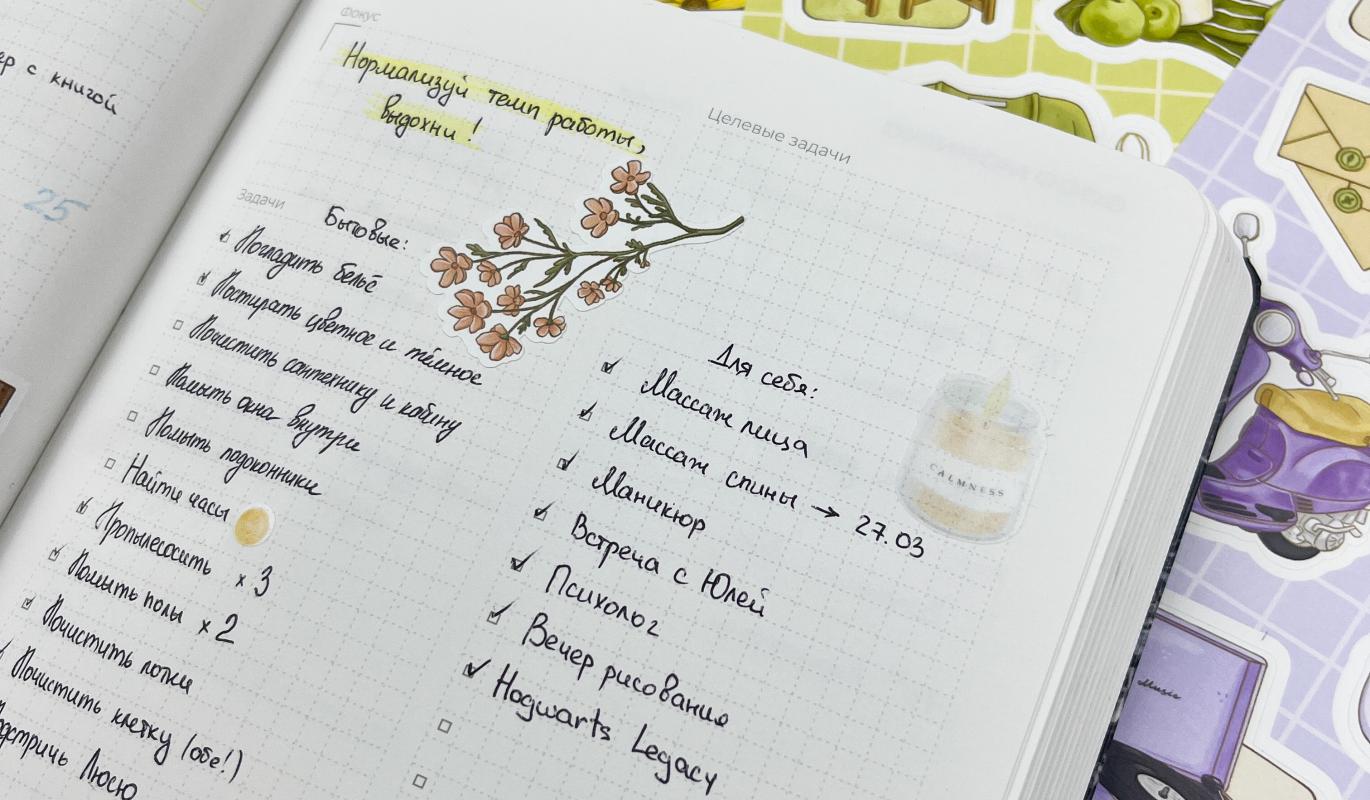 с книгой
25
Фокус
Нормализуй темп работы,
выдохни!
Целевые задачи
Задачи
Бытовые:
Погладить бельё
Постирать цветное и тёмное
Почистить сантехнику и кабину
Помыть окна внутри
Помыть подоконники
Найти часы
Пропылесосить x 3
Помыть полы x 2
Почистить лотки
Почистить клетку (обе!)
Люсю
Для себя:
Массаж лица
Массаж спины → 27.03
Маникюр
Встреча с Юлей
Психолог
Вечер рисования
Hogwarts Legacy
CALMNESS
Music